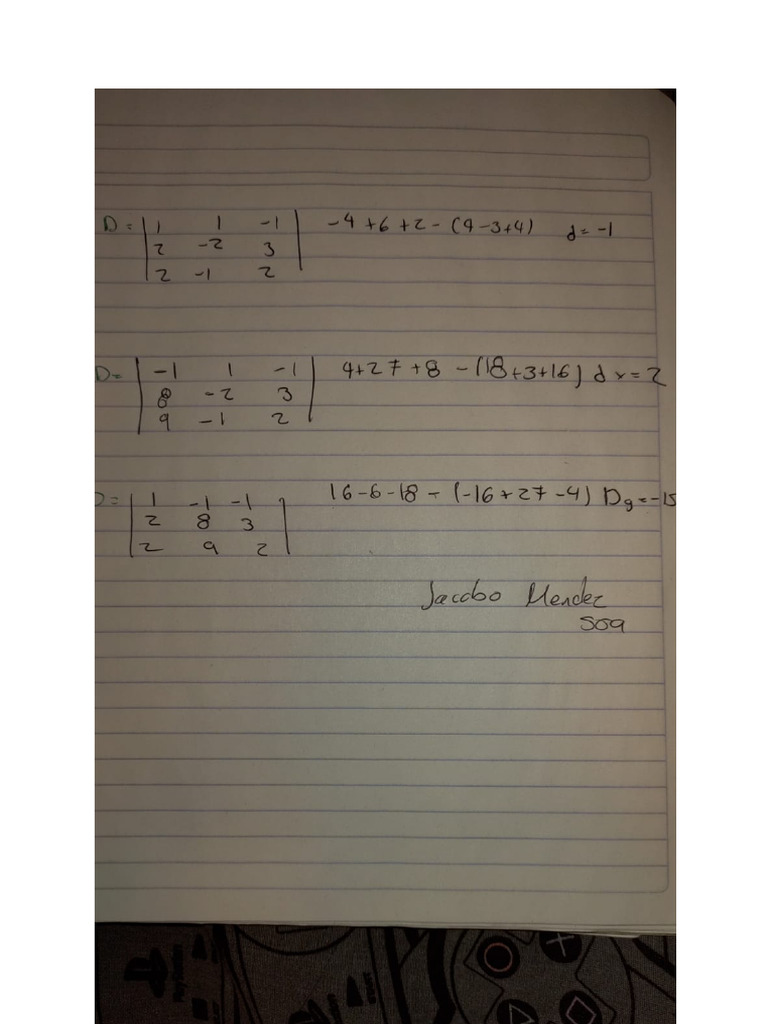 D= | 1 1 -1 | -4+6+2-(4-3+4) d=-1
| 2 -2 3 |
| 2 -1 2 |
D= | -1 1 -1 | 4+27+8-(18+3+16) dx=2
| 8 -2 3 |
| 9 -1 2 |
D= | 1 -1 -1 | 16-6-18-(-16+27-4) Dy=-15
| 2 8 3 |
| 2 9 2 |
Jacobo Mendez
509